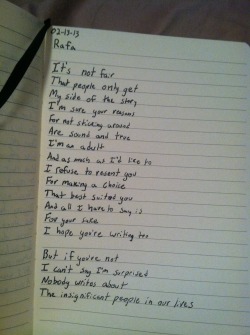 02-13-13
Rafa
It's not fair
That people only get
My side of the story
I'm sure your reasons
For not sticking around
Are sound and true
I'm an adult
And as much as I'd like to
I refuse to resent you
For making a choice
That best suited you
And all I have to say is
For your sake
I hope you're writing too
But if you're not
I can't say I'm surprised
Nobody writes about
The insignificant people in our lives